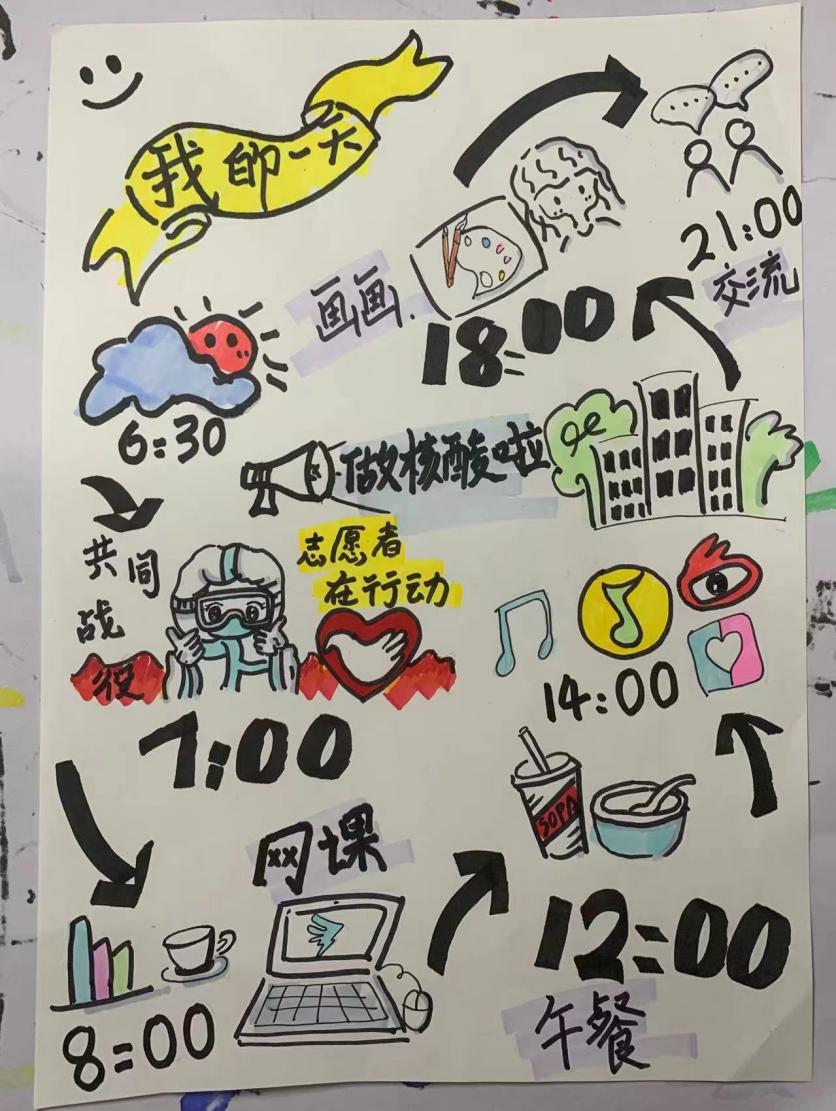 我的一天
6:30
共同
战
役
志愿者
在行动
7:00
网课
8:00
SOPA
12:00
午餐
14:00
做核酸啦
画画
18:00
21:00
交流